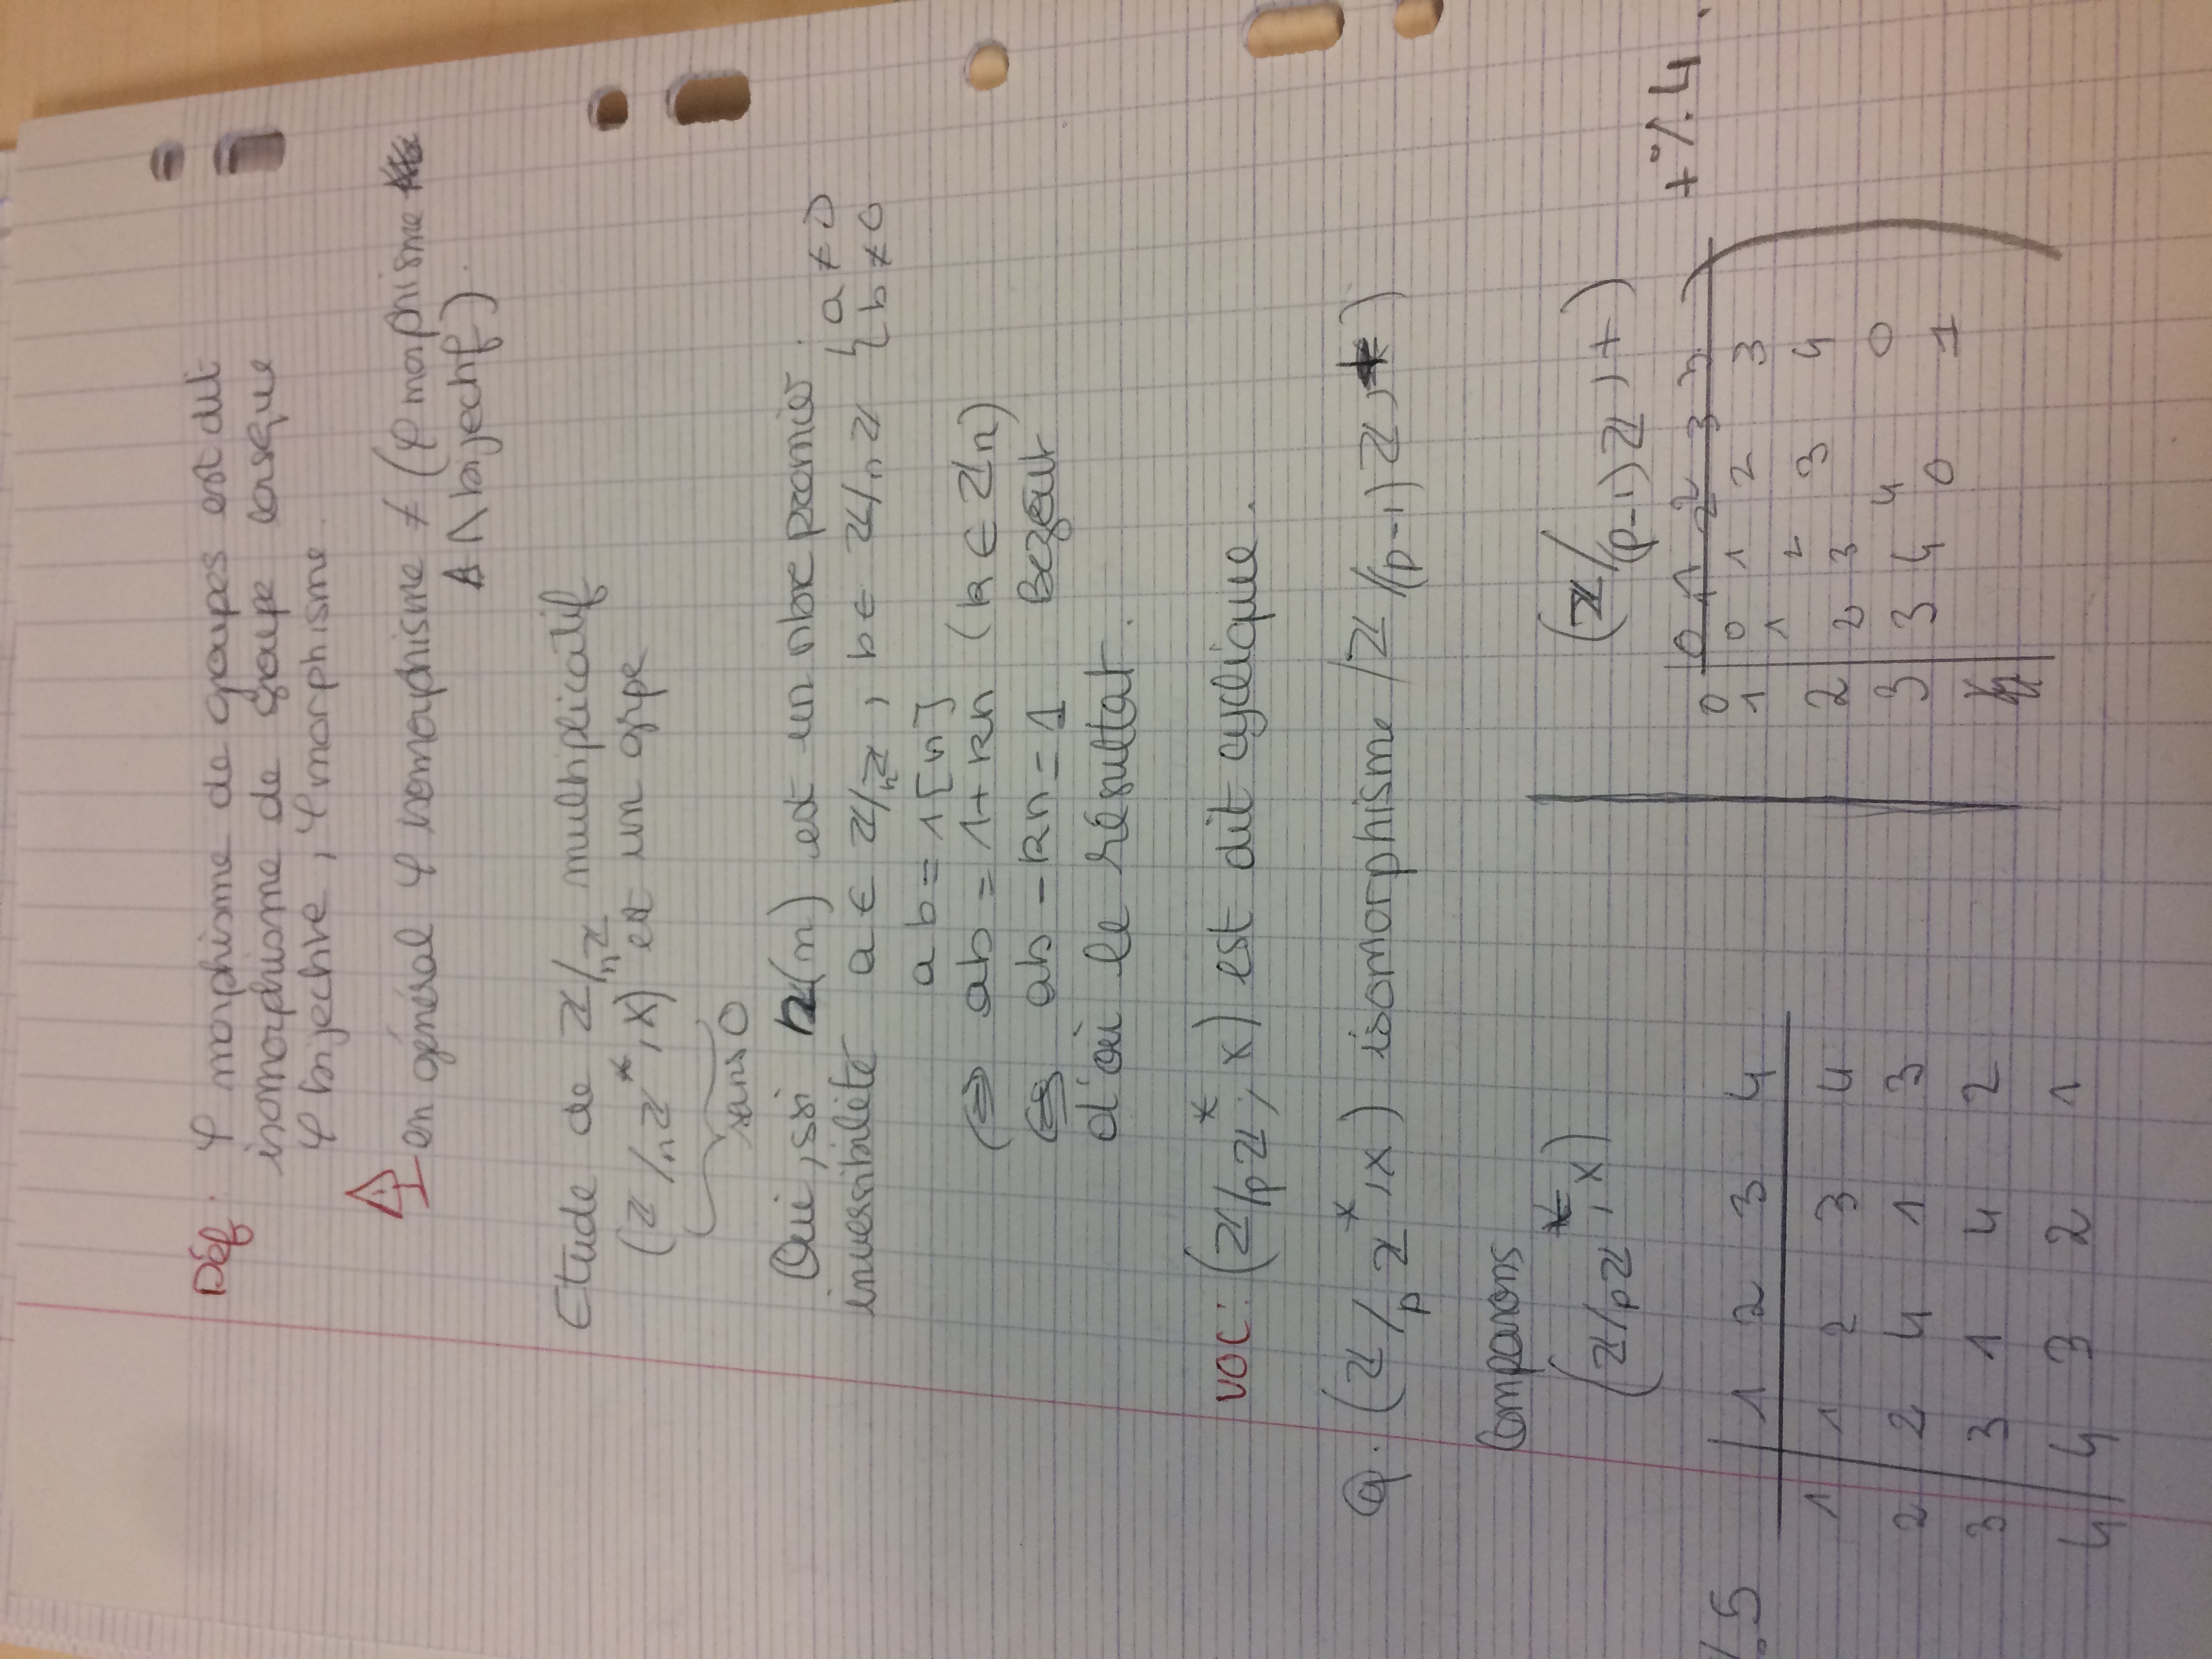 Déf : φ morphisme de groupes est dit
isomorphisme de groupe lorsque
φ bijective, φ morphisme.
en général φ isomorphisme ≠ (φ morphisme
∧ bijectif).
Etude de ℤ/nℤ multiplicatif
(ℤ/nℤ*, x) est un grpe
sans 0
Oui, ssi (n) est un nbre premier.
inversibilité a ∈ ℤ/nℤ, b ∈ ℤ/nℤ { a ≠ 0
{ b ≠ 0
ab = 1[n]
⇔ ab = 1 + kn (k ∈ ℤn)
⇔ ab - kn = 1 Bezout
d'où le résultat.
VOC : (ℤ/pℤ*, x) est dit cyclique.
Q. (ℤ/pℤ*, x) isomorphisme (ℤ/(p-1)ℤ, +)
Comparons
(ℤ/pℤ*, x)
(ℤ/(p-1)ℤ, +)
+%4.
%5
1 2 3 4
1 1 2 3 4
2 2 4 1 3
3 3 1 4 2
4 4 3 2 1
0 1 2 3
0 0 1 2 3
1 1 2 3 4
2 2 3 4 0
3 3 4 0 1